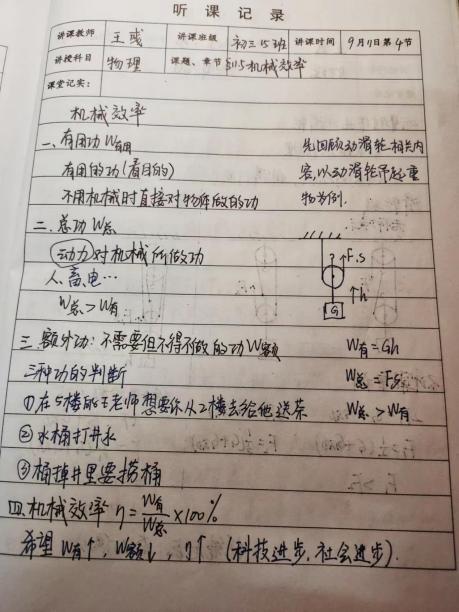 听课记录
讲课教师 王彧 讲课班级 初三15班 讲课时间 9月11日第4节
讲授科目 物理 课题、章节 §11.5机械效率
课堂记实：
机械效率
一、有用功 W有用 先回顾动滑轮相关内
有用的功(看目的) 容，以动滑轮吊起重
不用机械时直接对物体做的功 物为例.
二、总功 W总
动力对机械所做功 F.S
人、畜、电… h
W总＞W有 G
三、额外功：不需要但不得不做的功 W额 W有=Gh
三种功的判断 W总=Fs
①在5楼的王老师想要你从2楼去给他送茶 W总＞W有
②水桶打井水
③桶掉井里要捞桶
四.机械效率 η=W有/W总×100%
希望 W有↑，W额↓，η↑ (科技进步.社会进步).